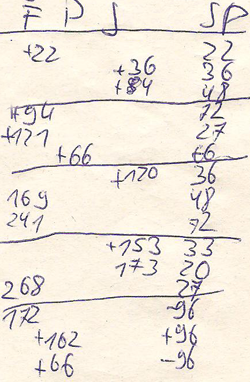 F P J SP
+22 22
+36 36
+84 48
+94 72
+121 27
+66 +6
+120 36
169 48
241 72
+153 33
173 20
268 27
172 -96
+162 +96
+66 -96